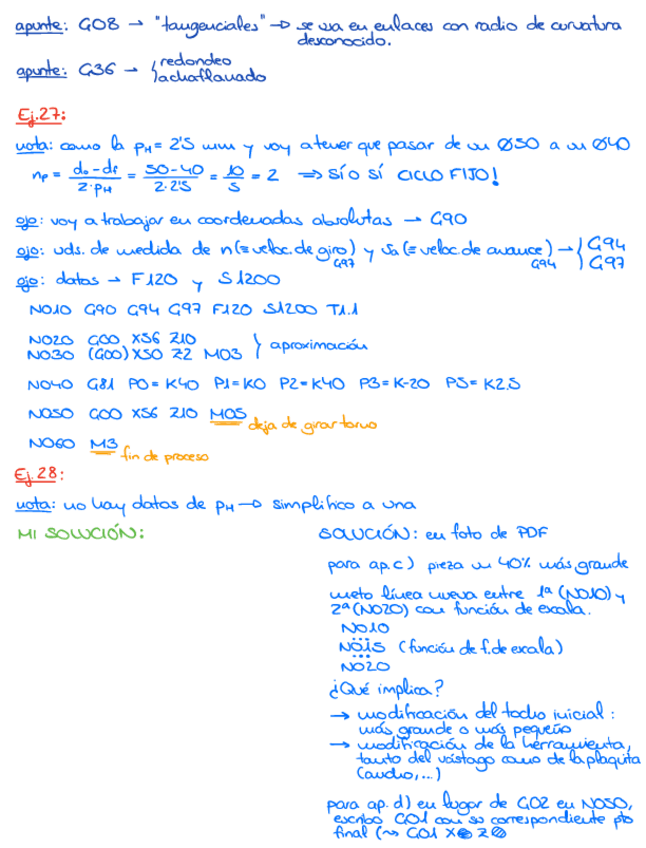 apunte: G08 → "tangenciales" → se usa en enlaces con radio de curvatura
desconocido.
apunte: G36 → { redondeo
achaflanado
Ej.27:
nota: como la pH = 2'5 mm y voy a tener que pasar de un Ø50 a un Ø40
np = do - df / 2·pH = 50-40 / 2·2'5 = 10 / 5 = 2 ⇒ SÍ o SÍ CICLO FIJO!
ojo: voy a trabajar en coordenadas absolutas → G90
ojo: uds. de medida de n (= veloc. de giro) y va (= veloc. de avance) → { G94
G97 G94 G97
ojo: datos → F120 y S1200
N010 G90 G94 G97 F120 S1200 T1.1
N020 G00 X56 Z10
N030 (G00) X50 Z2 M03 } aproximación
N040 G81 P0=K40 P1=K0 P2=K40 P3=K-20 P5=K2.5
N050 G00 X56 Z10 M05 deja de girar torno
N060 M3 fin de proceso
Ej.28:
nota: no hay datos de pH → simplifico a una
MI SOLUCIÓN:
SOLUCIÓN: en foto de PDF
para ap. c) pieza un 40% más grande
meto línea nueva entre 1ª (N010) y
2ª (N020) con función de escala.
N010
...
N015 (función de f. de escala)
...
N020
¿Qué implica?
→ modificación del tocho inicial:
más grande o más pequeño
→ modificación de la herramienta,
tanto del vástago como de la plaquita
(ancho,...)
para ap. d) en lugar de G02 en N050,
escribo G01 con su correspondiente pto
final (~> G01 X Z